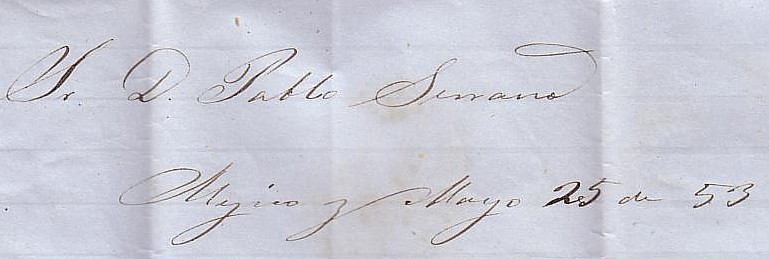 Sr. D. Pablo Serrano
Mejico y Mayo 25 de 53